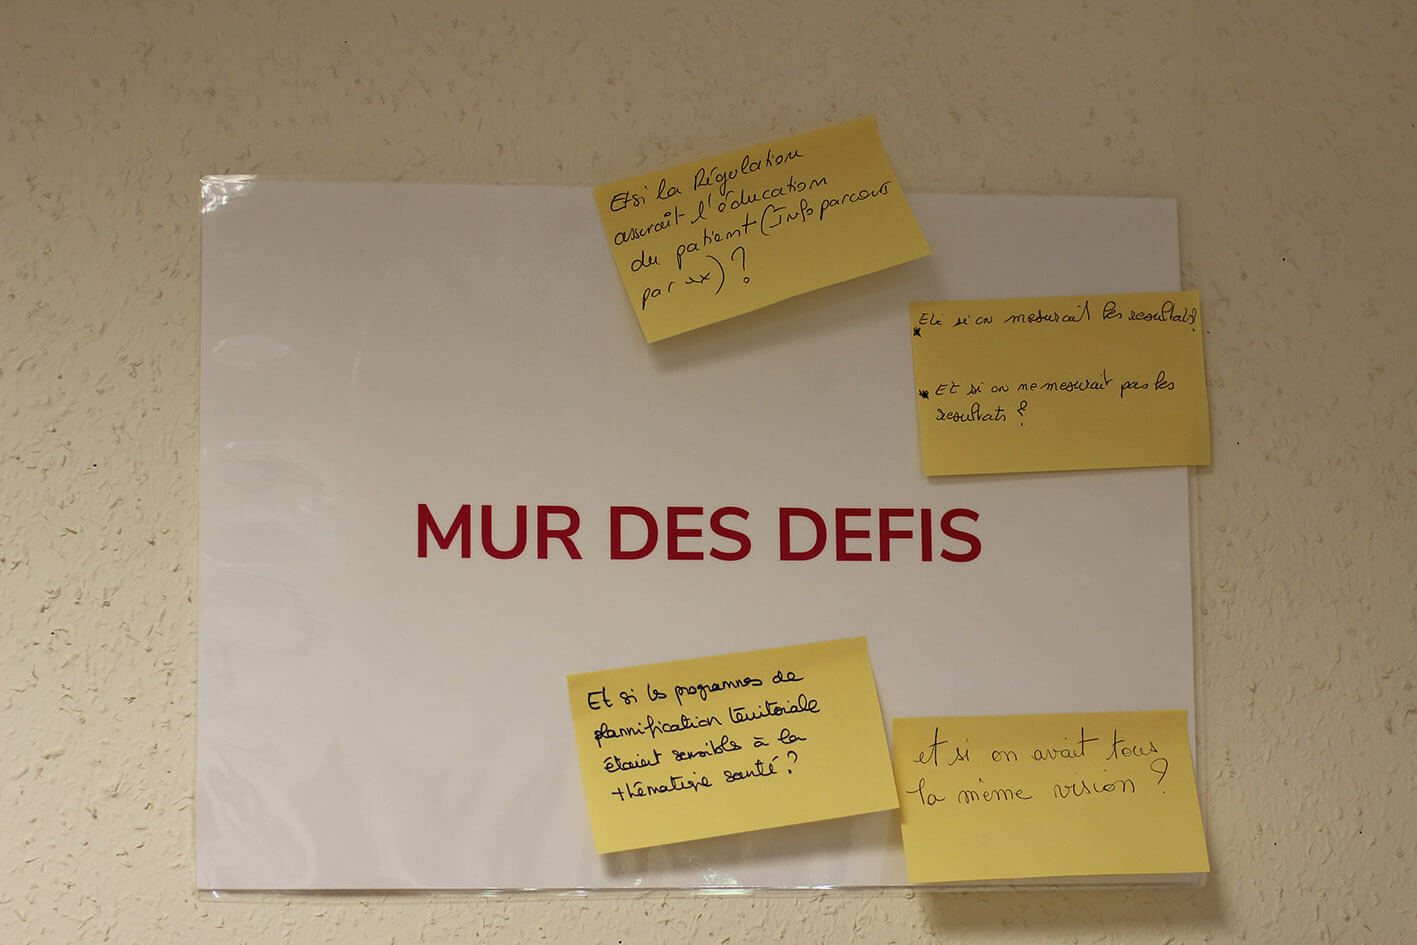 Et si la Régulation
assurait l'éducation
du patient (Info parcours
par xx) ?
Et si on mesurait les resultats?
Et si on ne mesurait pas les
resultats ?
MUR DES DEFIS
Et si les programmes de
planification territoriale
étaient sensibles à la
thématique santé ?
et si on avait tous
la même vision ?